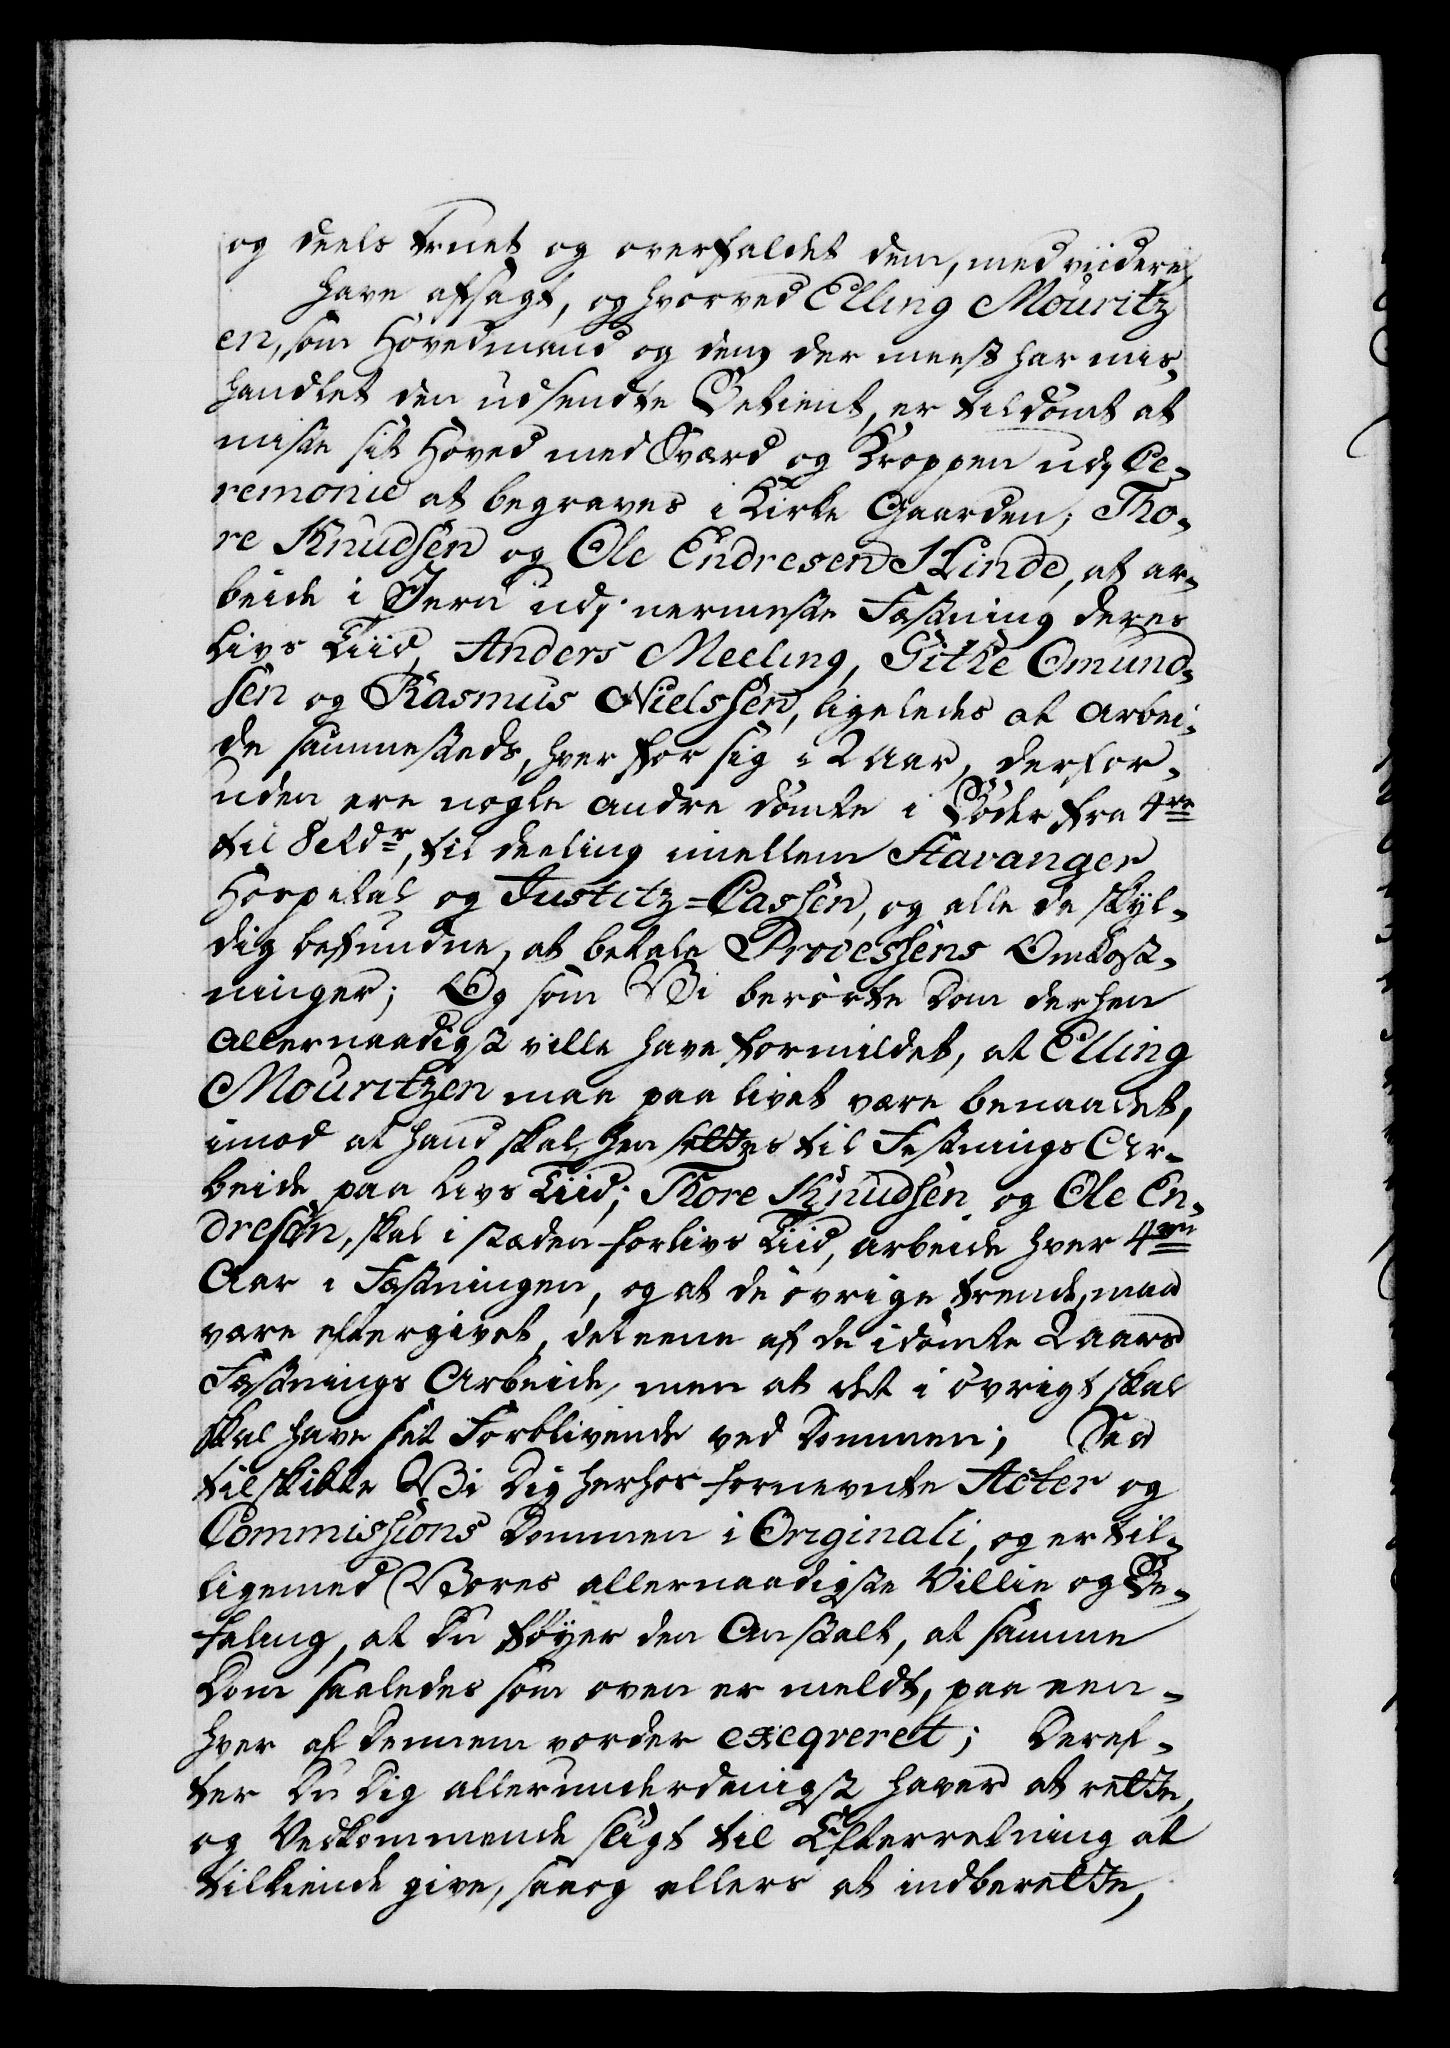 og deels truet og overfaldet dem, med viidere,
have afsagt, og hvorved Elling Mouritz
en, som Hovedmand og den, der meest har mis-
handlet den udsendte Betient, er tildømt at
miste sit Hoved med Sværd og Kroppen ud. Ce-
remonie at begraves i Kirke Gaarden; Tho-
re Knudsen og Ole Endresen Kinde, at ar-
beide i Jern udj nermeste Fæstning deres
Livs Tiid, Anders Meeling, Githe Omund-
sen og Rasmus Nielssen, ligeledes at arbei-
de sammesteds, hver for sig i 2 Aar, derfor-
uden ere nogle andre dømte i Bøder fra 4re
til 8 Rdr, til deeling imellem Stavanger
Hospital og Justitz-Cassen, og alle de skyl-
dig befundne, at betale Processens Omkost-
ninger; Og som Vi berørte Dom derhen
allernaadigst ville have formildet, at Elling
Mouritzen maa paa livet være benaadet,
imod at hand skal hensettes til Festnings Ar-
beide paa Livs Tiid; Thore Knudsen og Ole En-
dresen, skal i stæden for livs Tiid, arbeide hver 4re
Aar i Fæstningen, og at de øvrige trende, maa
være eftergivet, det eene af de idømte 2 Aars
Fæstnings Arbeide, men at det i øvrigt skal
skal have sit Forblivende ved Dommen; Saa
tilskikke Vi Dig herhos fornevnte Acter og
Commissions Dommen i Originali, og er til-
ligemed Vores allernaadigste Villie og Be-
faling, at Du føyer den Anstalt, at samme
Dom saaledes som oven er meldt, paa een-
hver af Dennem vorder exeqveret; Deref-
ter Du Dig allerunderdanigst haver at rette,
og Vedkommende sligt til Efterretning at
tilkiende give, saa og ellers at indberette,